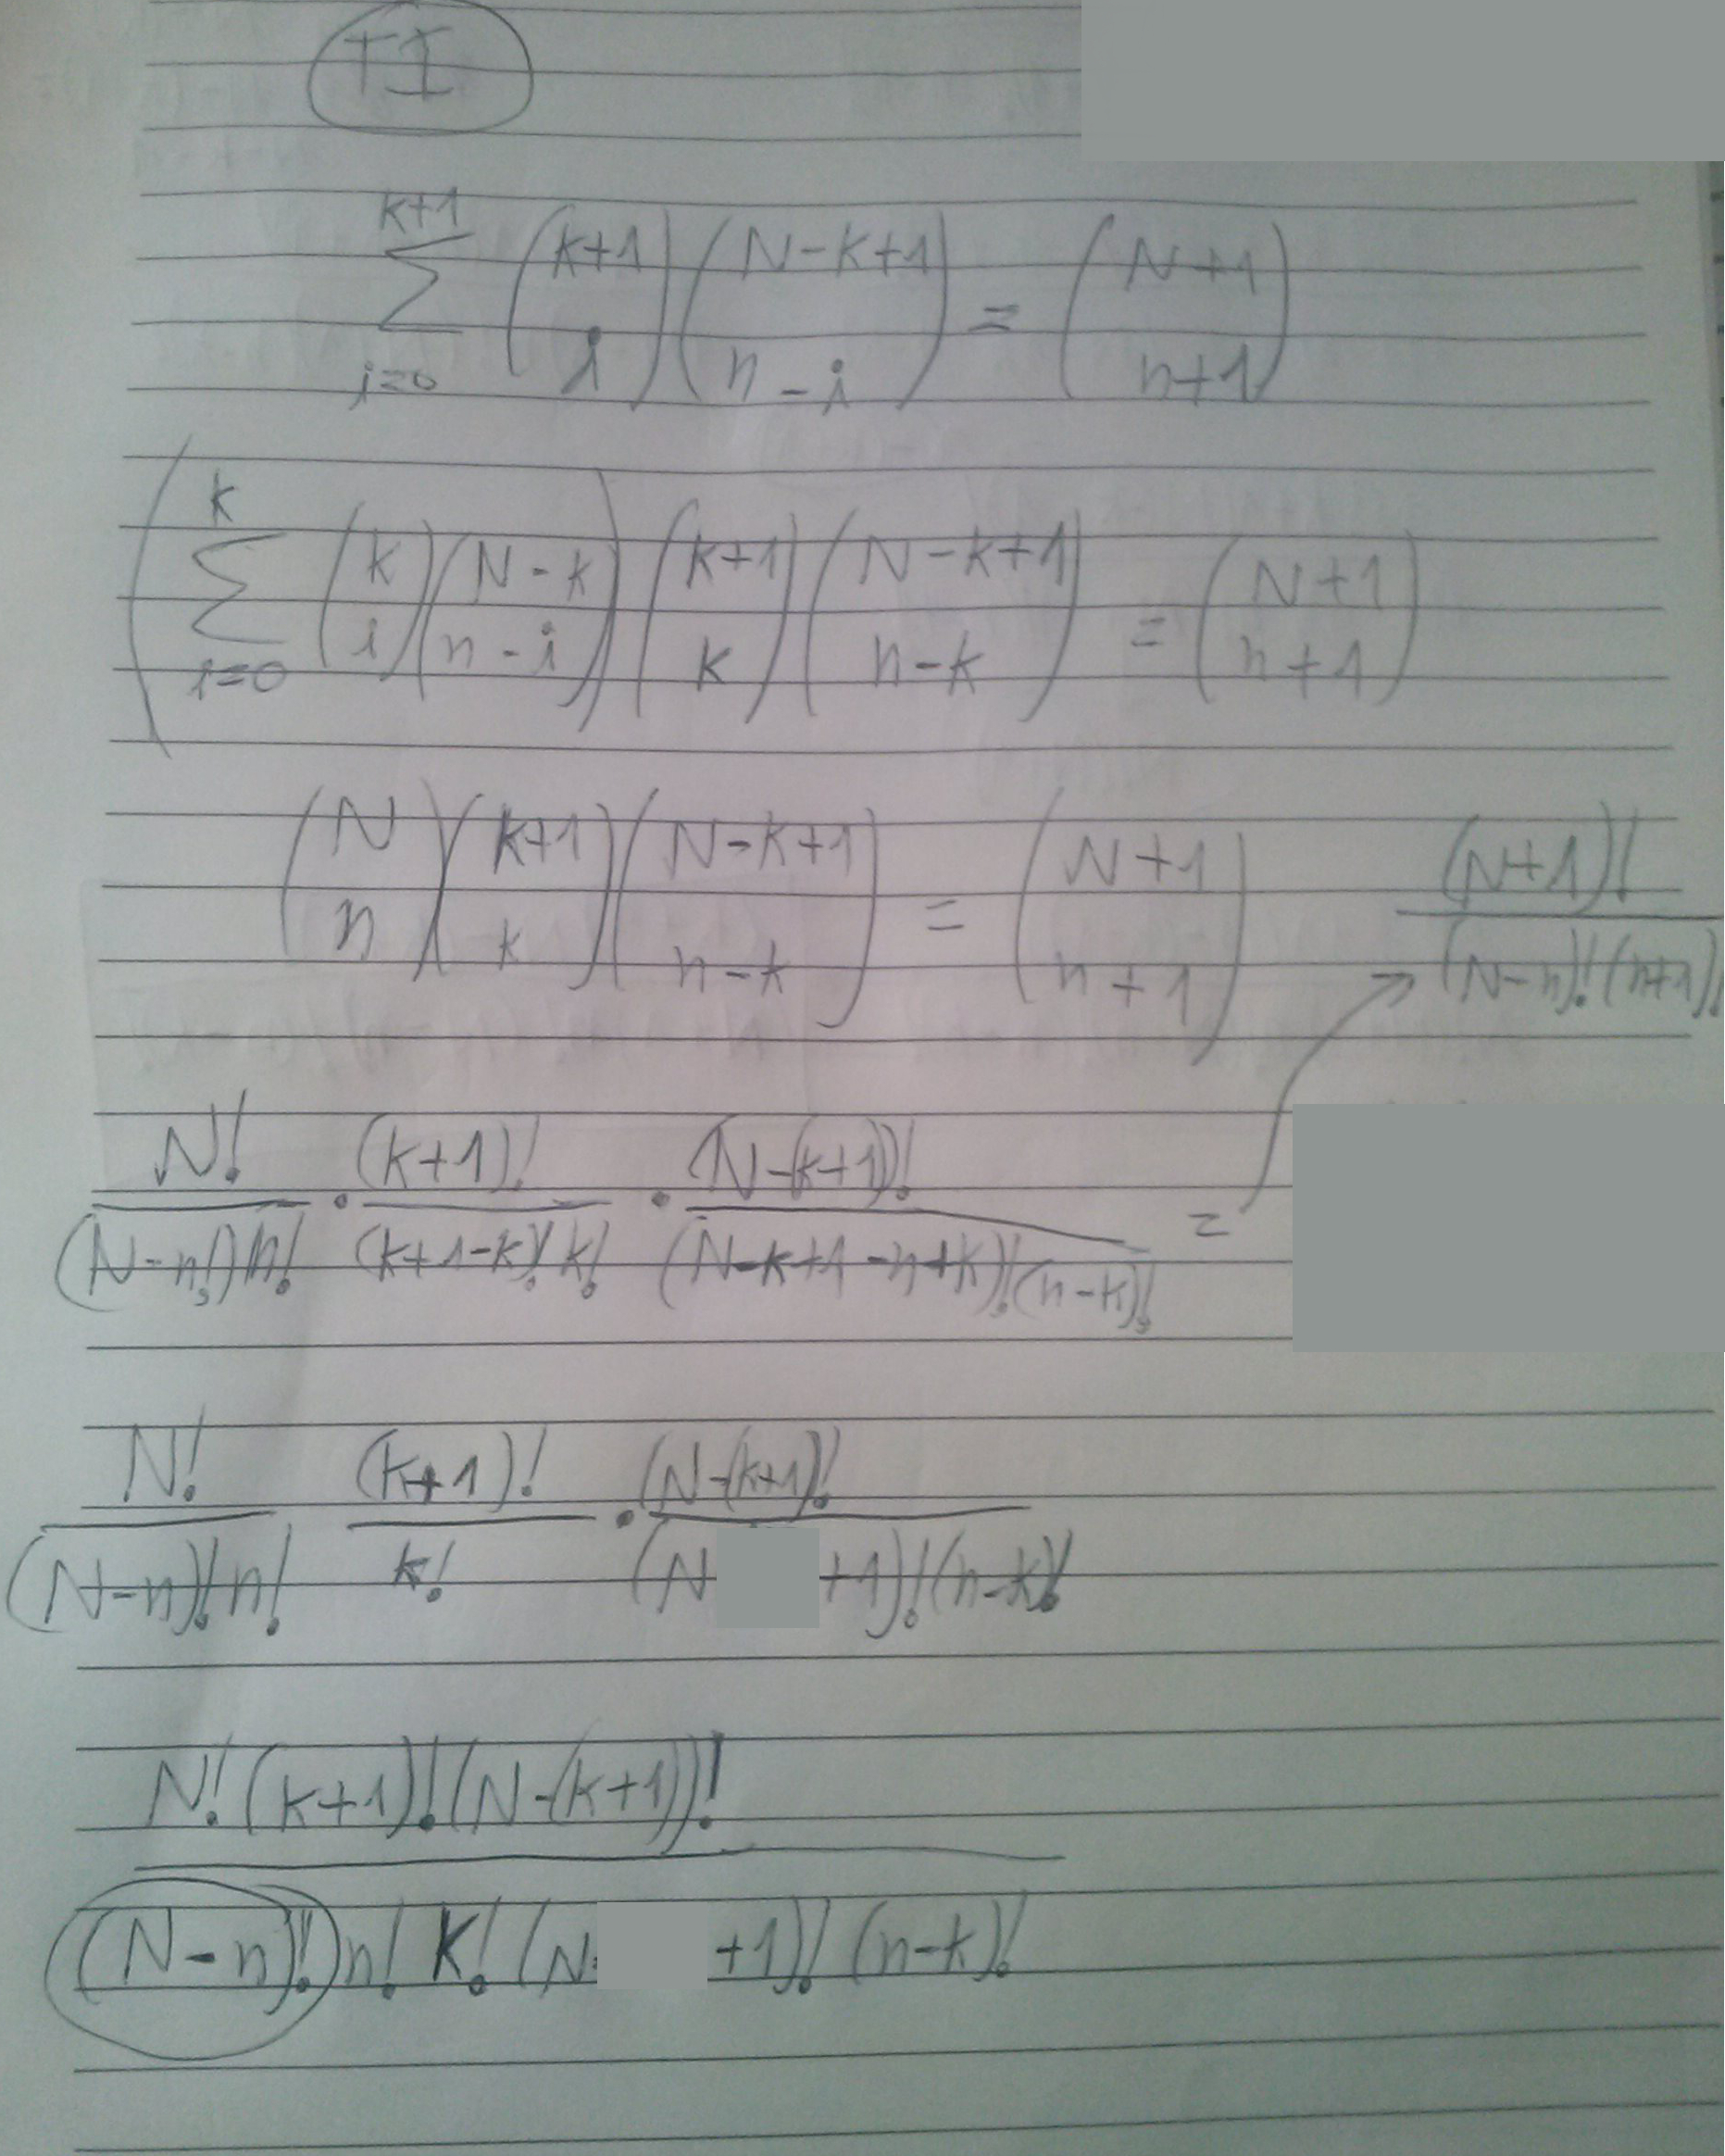 TI
\sum_{i=0}^{k+1} \binom{k+1}{i} \binom{N-k+1}{n-i} = \binom{N+1}{n+1}
\left( \sum_{i=0}^{k} \binom{k}{i} \binom{N-k}{n-i} \right) \binom{k+1}{k} \binom{N-k+1}{n-k} = \binom{N+1}{n+1}
\binom{N}{n} \binom{k+1}{k} \binom{N-k+1}{n-k} = \binom{N+1}{n+1} \frac{(N+1)!}{(N-n)!(n+1)!}
\frac{N!}{(N-n!)n!} \cdot \frac{(k+1)!}{(k+1-k)!k!} \cdot \frac{(N-(k+1))!}{(N-k+1-n+k)!(n-k)!} = →
\frac{N!}{(N-n)!n!} \frac{(k+1)!}{k!} \cdot \frac{(N-(k+1)!}{(N +1)!(n-k)!}
\frac{N!(k+1)!(N-(k+1))!}{(N-n)!n!k!(N- +1)!(n-k)!}